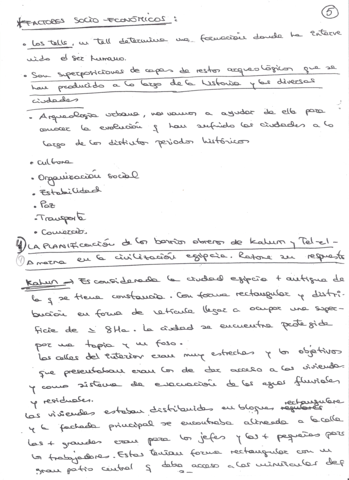 5
* FACTORES SOCIO-ECONÓMICOS:
• Los tells, un tell determina una formación donde ha interve
nido el ser humano.
• Son superposiciones de capas de restos arqueológicos que se
han producido a lo largo de la historia y las diversas
ciudades
• Arqueología urbana, nos vamos a ayudar de ella para
conocer la evolución q han sufrido las ciudades a lo
largo de los distintos periodos históricos
• Cultura
• Organización social
• Estabilidad
• Paz
• Transporte
• Comercio.
4) LA PLANIFICACIÓN de los barrios obreros de Kahun y Tel-el-
Amarna en la civilización egipcia. Razone su respuesta
Kahun → Es considerada la ciudad egipcia + antigua de
la q se tiene constancia. Con forma rectangular y distri-
bución en forma de retícula llegó a ocupar una super-
ficie de ≥ 8Ha. La ciudad se encuentra protegida
por una tapia y un foso.
Las calles del interior eran muy estrechas y los objetivos
que presentaban eran los de dar acceso a las viviendas
y como sistema de evacuación de las aguas fluviales
y residuales.
Las viviendas estaban distribuidas en bloques rectangulares
y la fachada principal se encontraba alineada a la calle
las + grandes eran para los jefes y las + pequeñas para
los trabajadores. Estas tenían forma rectangular con un
gran patio central q daba acceso a las minúsculas dep